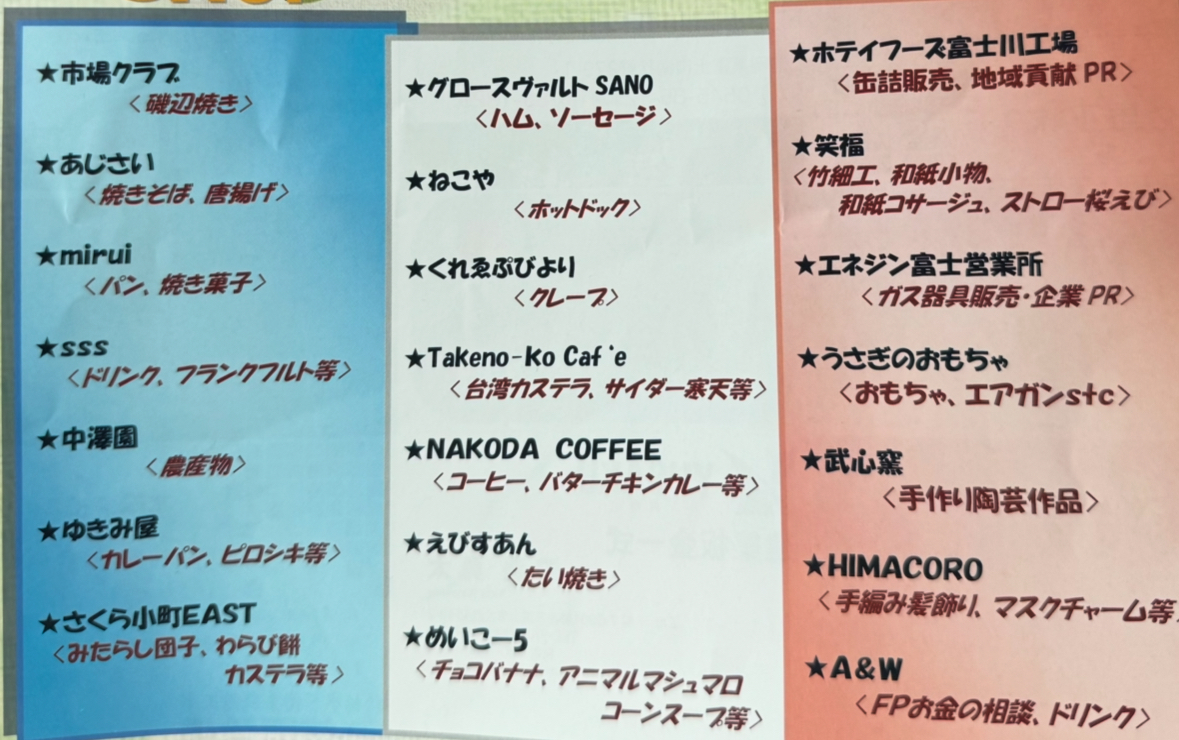 ★市場クラブ
〈磯辺焼き〉
★あじさい
〈焼きそば、唐揚げ〉
★mirui
〈パン、焼き菓子〉
★sss
〈ドリンク、フランクフルト等〉
★中澤園
〈農産物〉
★ゆきみ屋
〈カレーパン、ピロシキ等〉
★さくら小町EAST
〈みたらし団子、わらび餅
カステラ等〉
★グロースヴァルト SANO
〈ハム、ソーセージ〉
★ねこや
〈ホットドック〉
★くれゑぷびより
〈クレープ〉
★Takeno-Ko Caf'e
〈台湾カステラ、サイダー寒天等〉
★NAKODA COFFEE
〈コーヒー、バターチキンカレー等〉
★えびすあん
〈たい焼き〉
★めいこー5
〈チョコバナナ、アニマルマシュマロ
コーンスープ等〉
★ホテイフーズ富士川工場
〈缶詰販売、地域貢献 PR〉
★笑福
〈竹細工、和紙小物、
和紙コサージュ、ストロー桜えび〉
★エネジン富士営業所
〈ガス器具販売・企業 PR〉
★うさぎのおもちゃ
〈おもちゃ、エアガンstc〉
★武心窯
〈手作り陶芸作品〉
★HIMACORO
〈手編み髪飾り、マスクチャーム等〉
★A&W
〈FPお金の相談、ドリンク〉